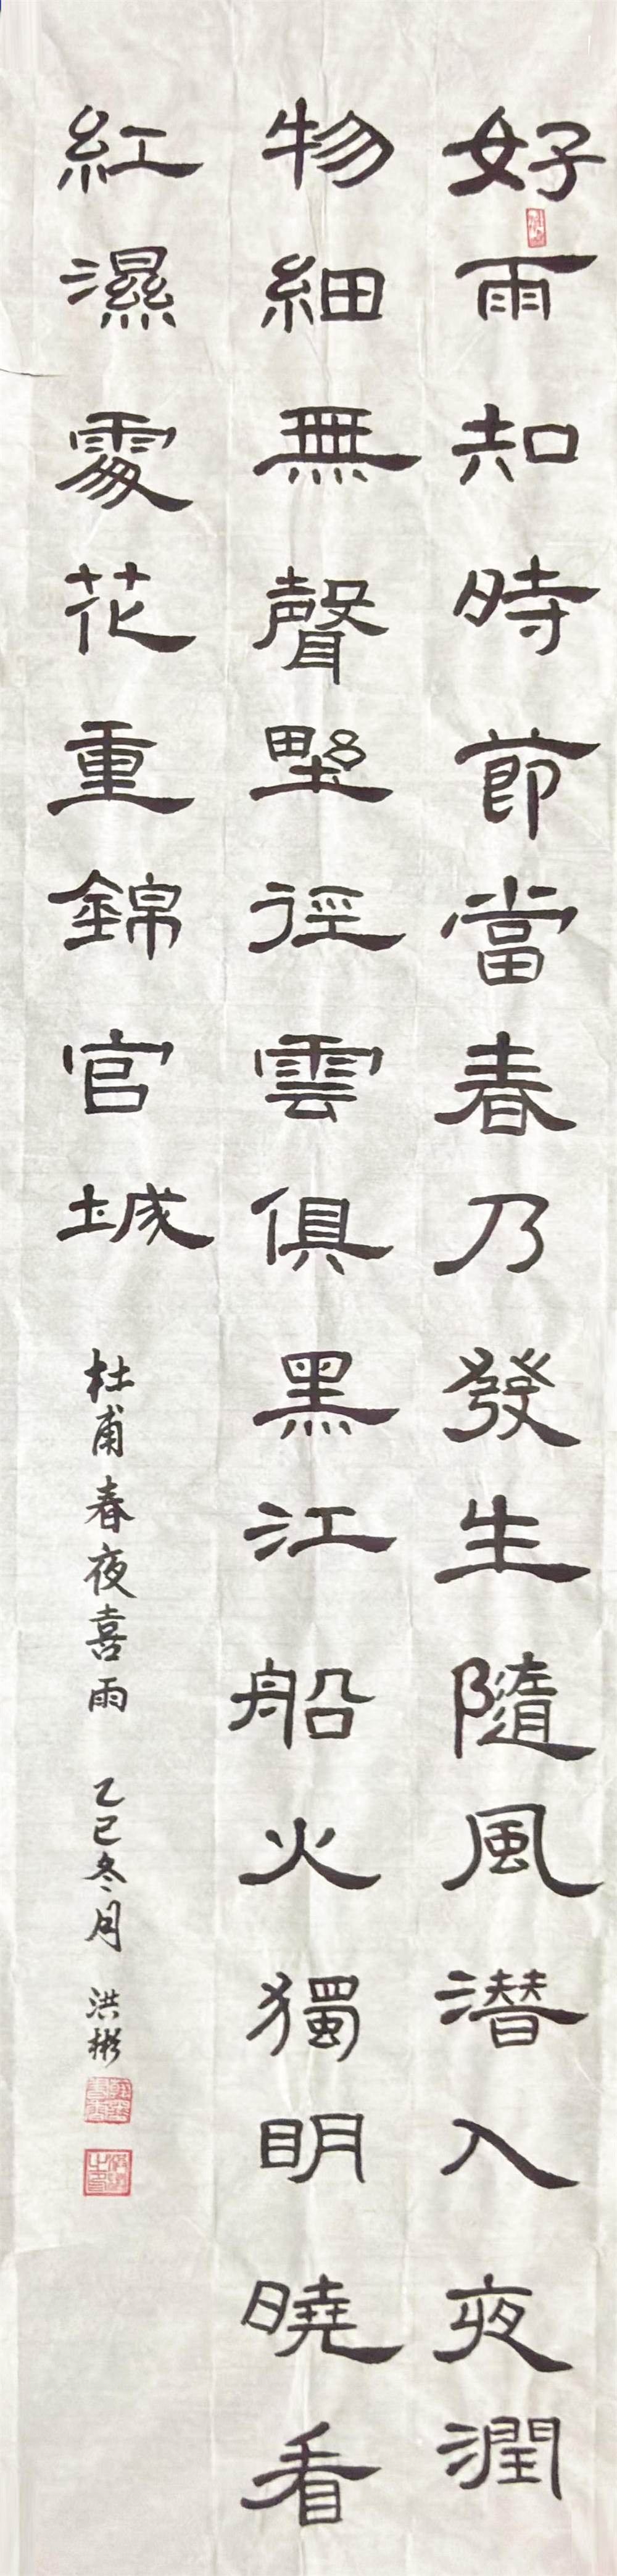 好雨知時節當春乃發生隨風潛入夜潤
物細無聲野徑雲俱黑江船火獨明曉看
紅濕處花重錦官城
杜甫春夜喜雨 乙巳冬月 洪彬